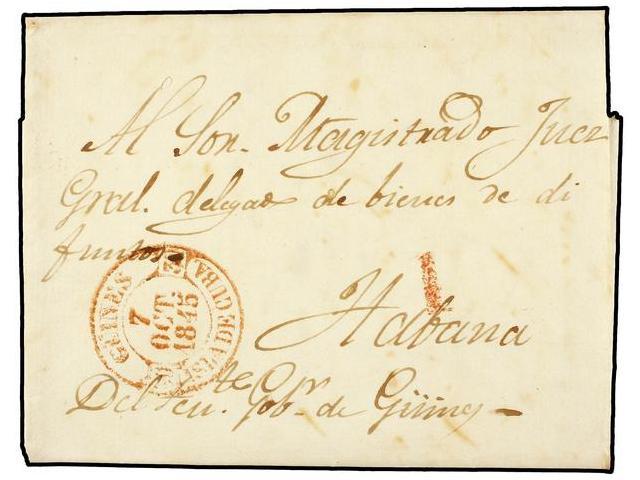 Al Sor. Magistrado Juez
Gral. delegado de bienes de di
funtos.
Habana
Del Ten.te Gobr. de Güines
GUINES
ISLA DE CUBA
7
OCT.
1845